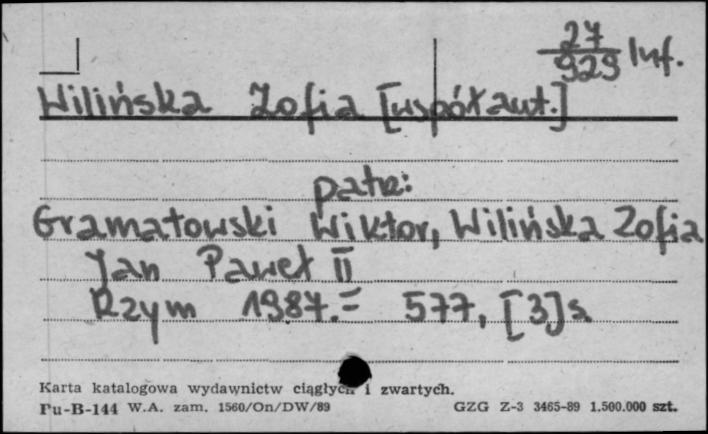 27
929 Inf.
Wilińska Zofia [współaut.]
patrz:
Gramatowski Wiktor, Wilińska Zofia
Jan Paweł II
Rzym 1987.= 577, [3] s.
Karta katalogowa wydawnictw ciągłych i zwartych.
Pu-B-144 W.A. zam. 1560/On/DW/89 GZG Z-3 3465-89 1.500.000 szt.